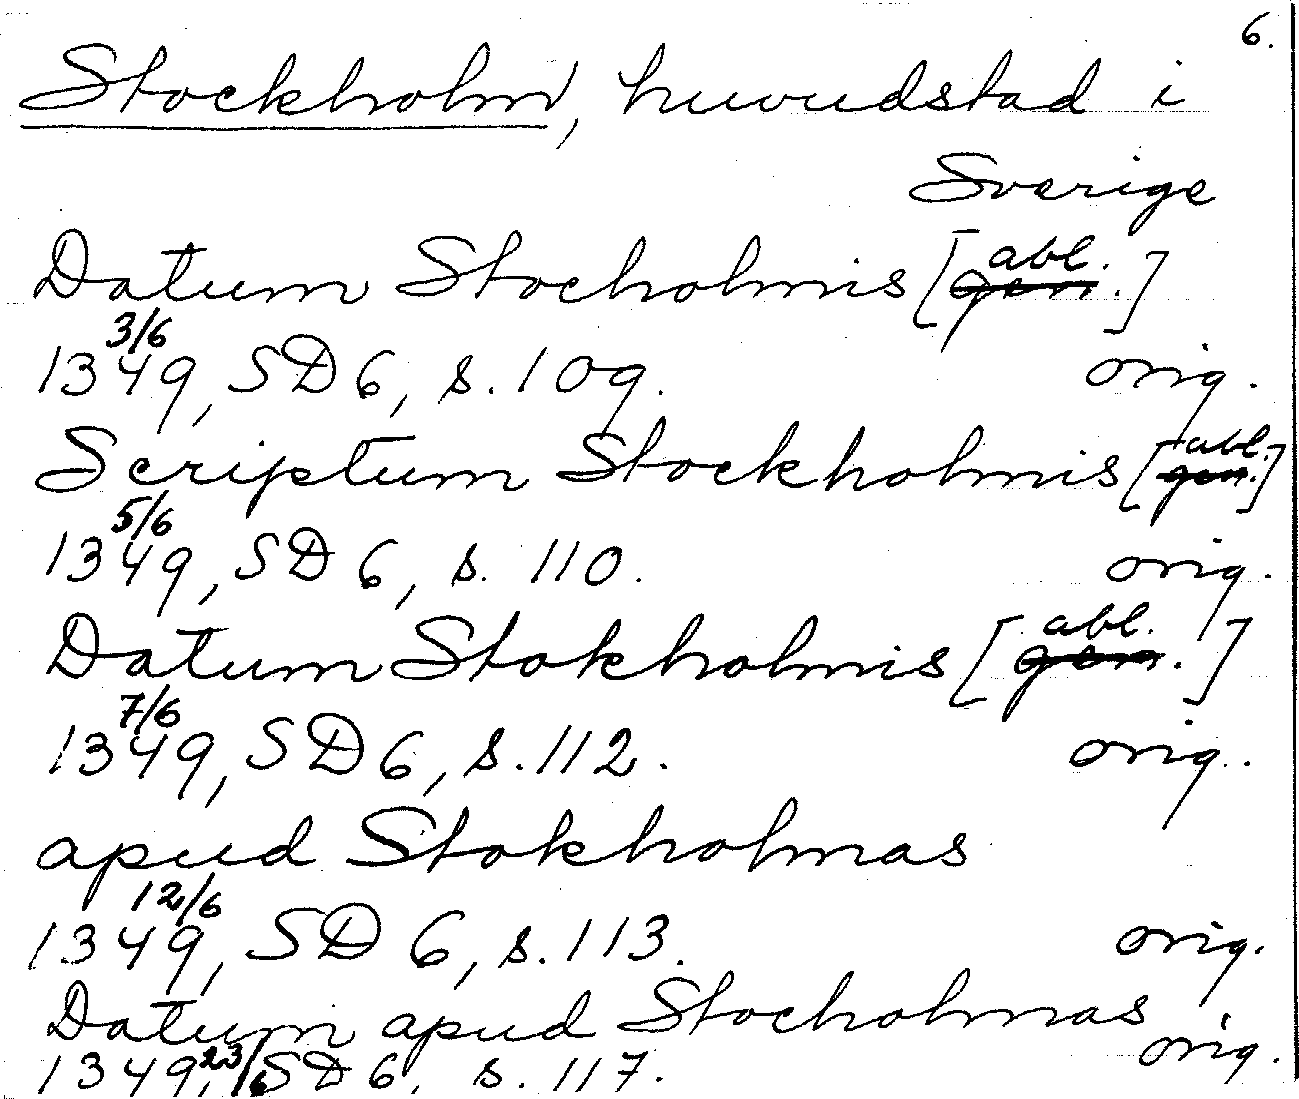 6.
Stockholm, huvudstad i
Sverige
Datum Stocholmis [gen. abl.]
1349, 3/6 SD 6, s. 109. orig.
Scriptum Stockholmis [gen. abl.]
1349, 5/6 SD 6, s. 110. orig.
Datum Stokholmis [gen. abl.]
1349, 7/6 SD 6, s. 112. orig.
apud Stokholmas
1349, 12/6 SD 6, s. 113. orig.
Datum apud Stocholmas
1349, 23/6 SD 6, s. 117. orig.